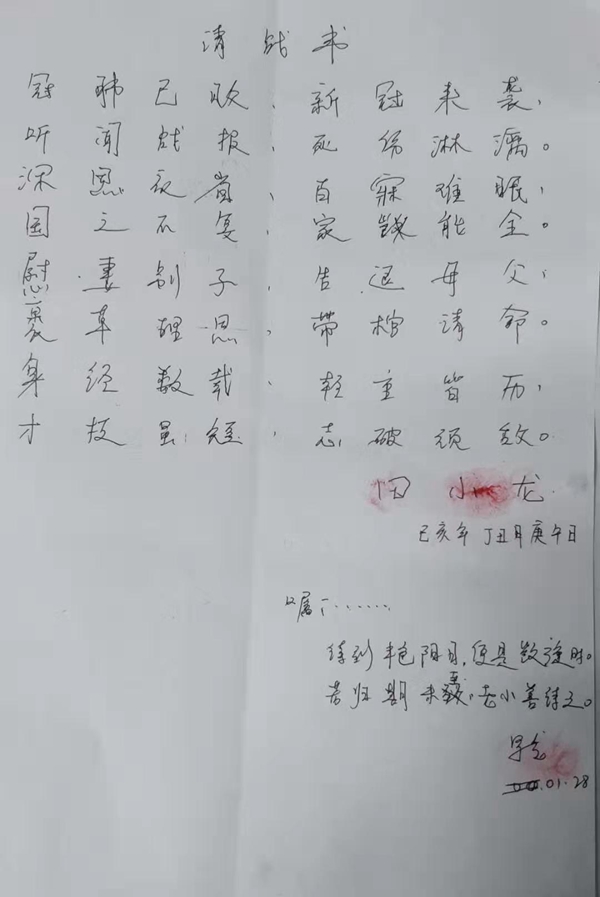 请战书
冠肺已败，新冠来袭，
听闻战报，死伤淋漓。
深恩夜省，百寐难眠，
国之不复，家几能全。
慰妻别子，告退母父，
裹革理思，带棺请命。
身经数载，轻重皆历，
才技虽短，志破须效。
田小龙
己亥年 丁丑月庚午日
嘱：......
待到丰色阳日，便是数  时。
若归期未  ，老小善待之。
01.28